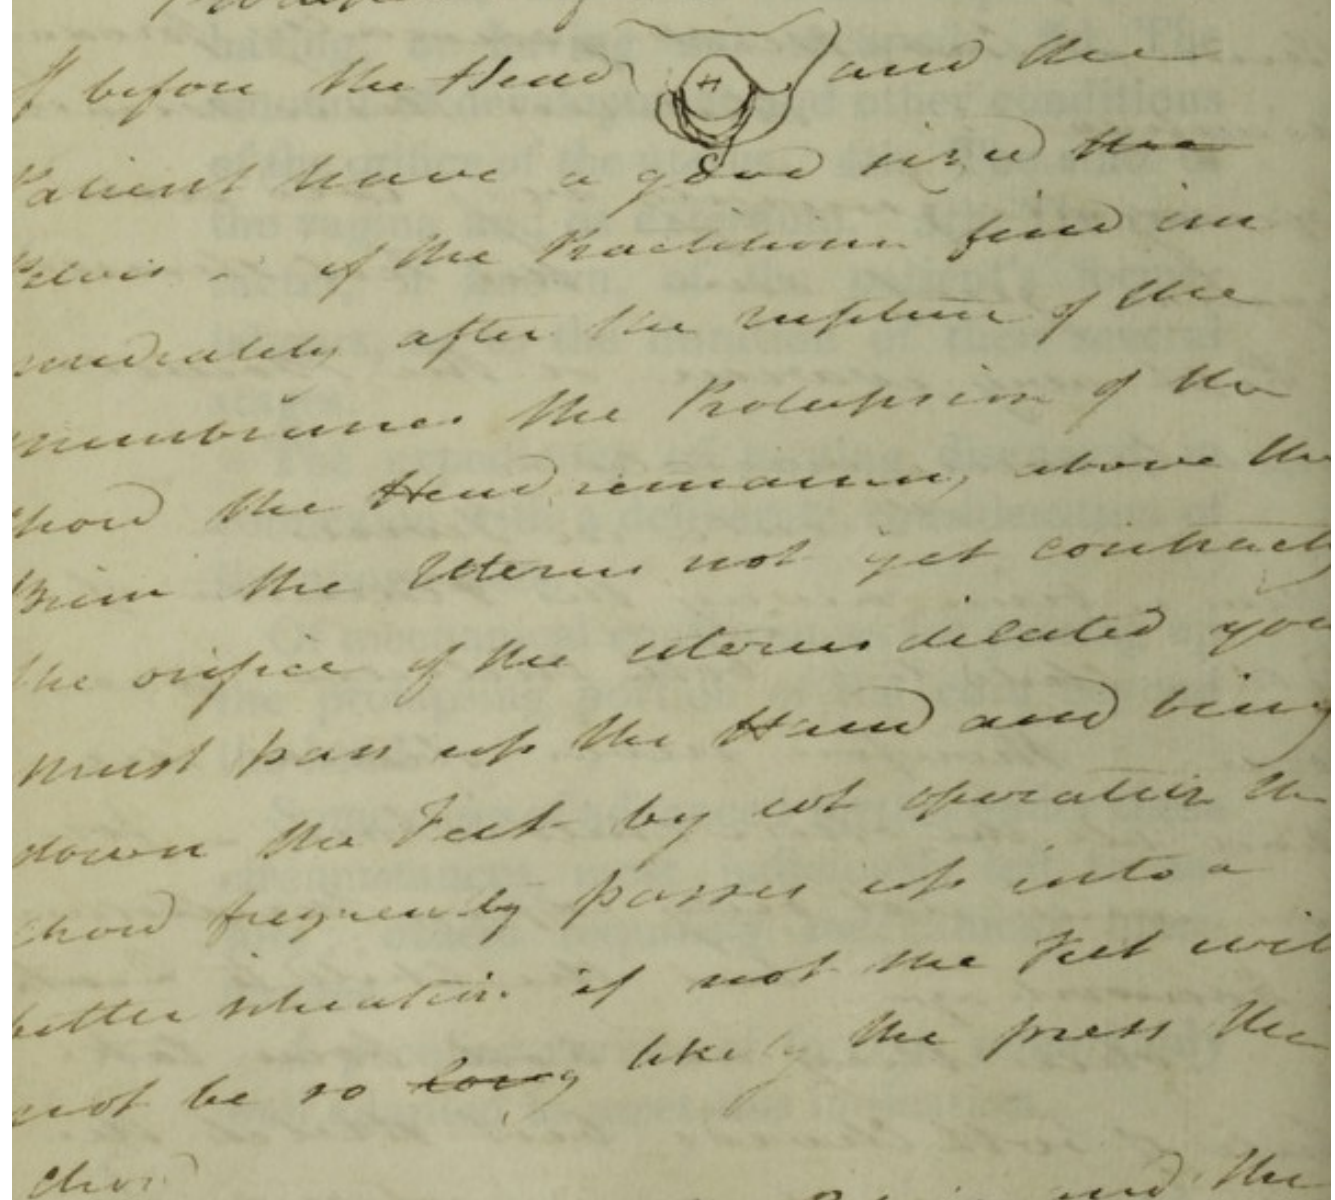 if before the Head and the
Patient have a good sized the
Pelvis - if the Practitioner find im
mediately after the rupture of the
membranes the Prolapsion of the
chord the Head remains above the
Brim the Uterus not yet contracted
the orifice of the uterus dilated you
must pass up the Hand and bring
down the Feet by wt operation the
chord frequently passes up into a
better situation if not the Feet will
not be so long likely the press the
chord
and the